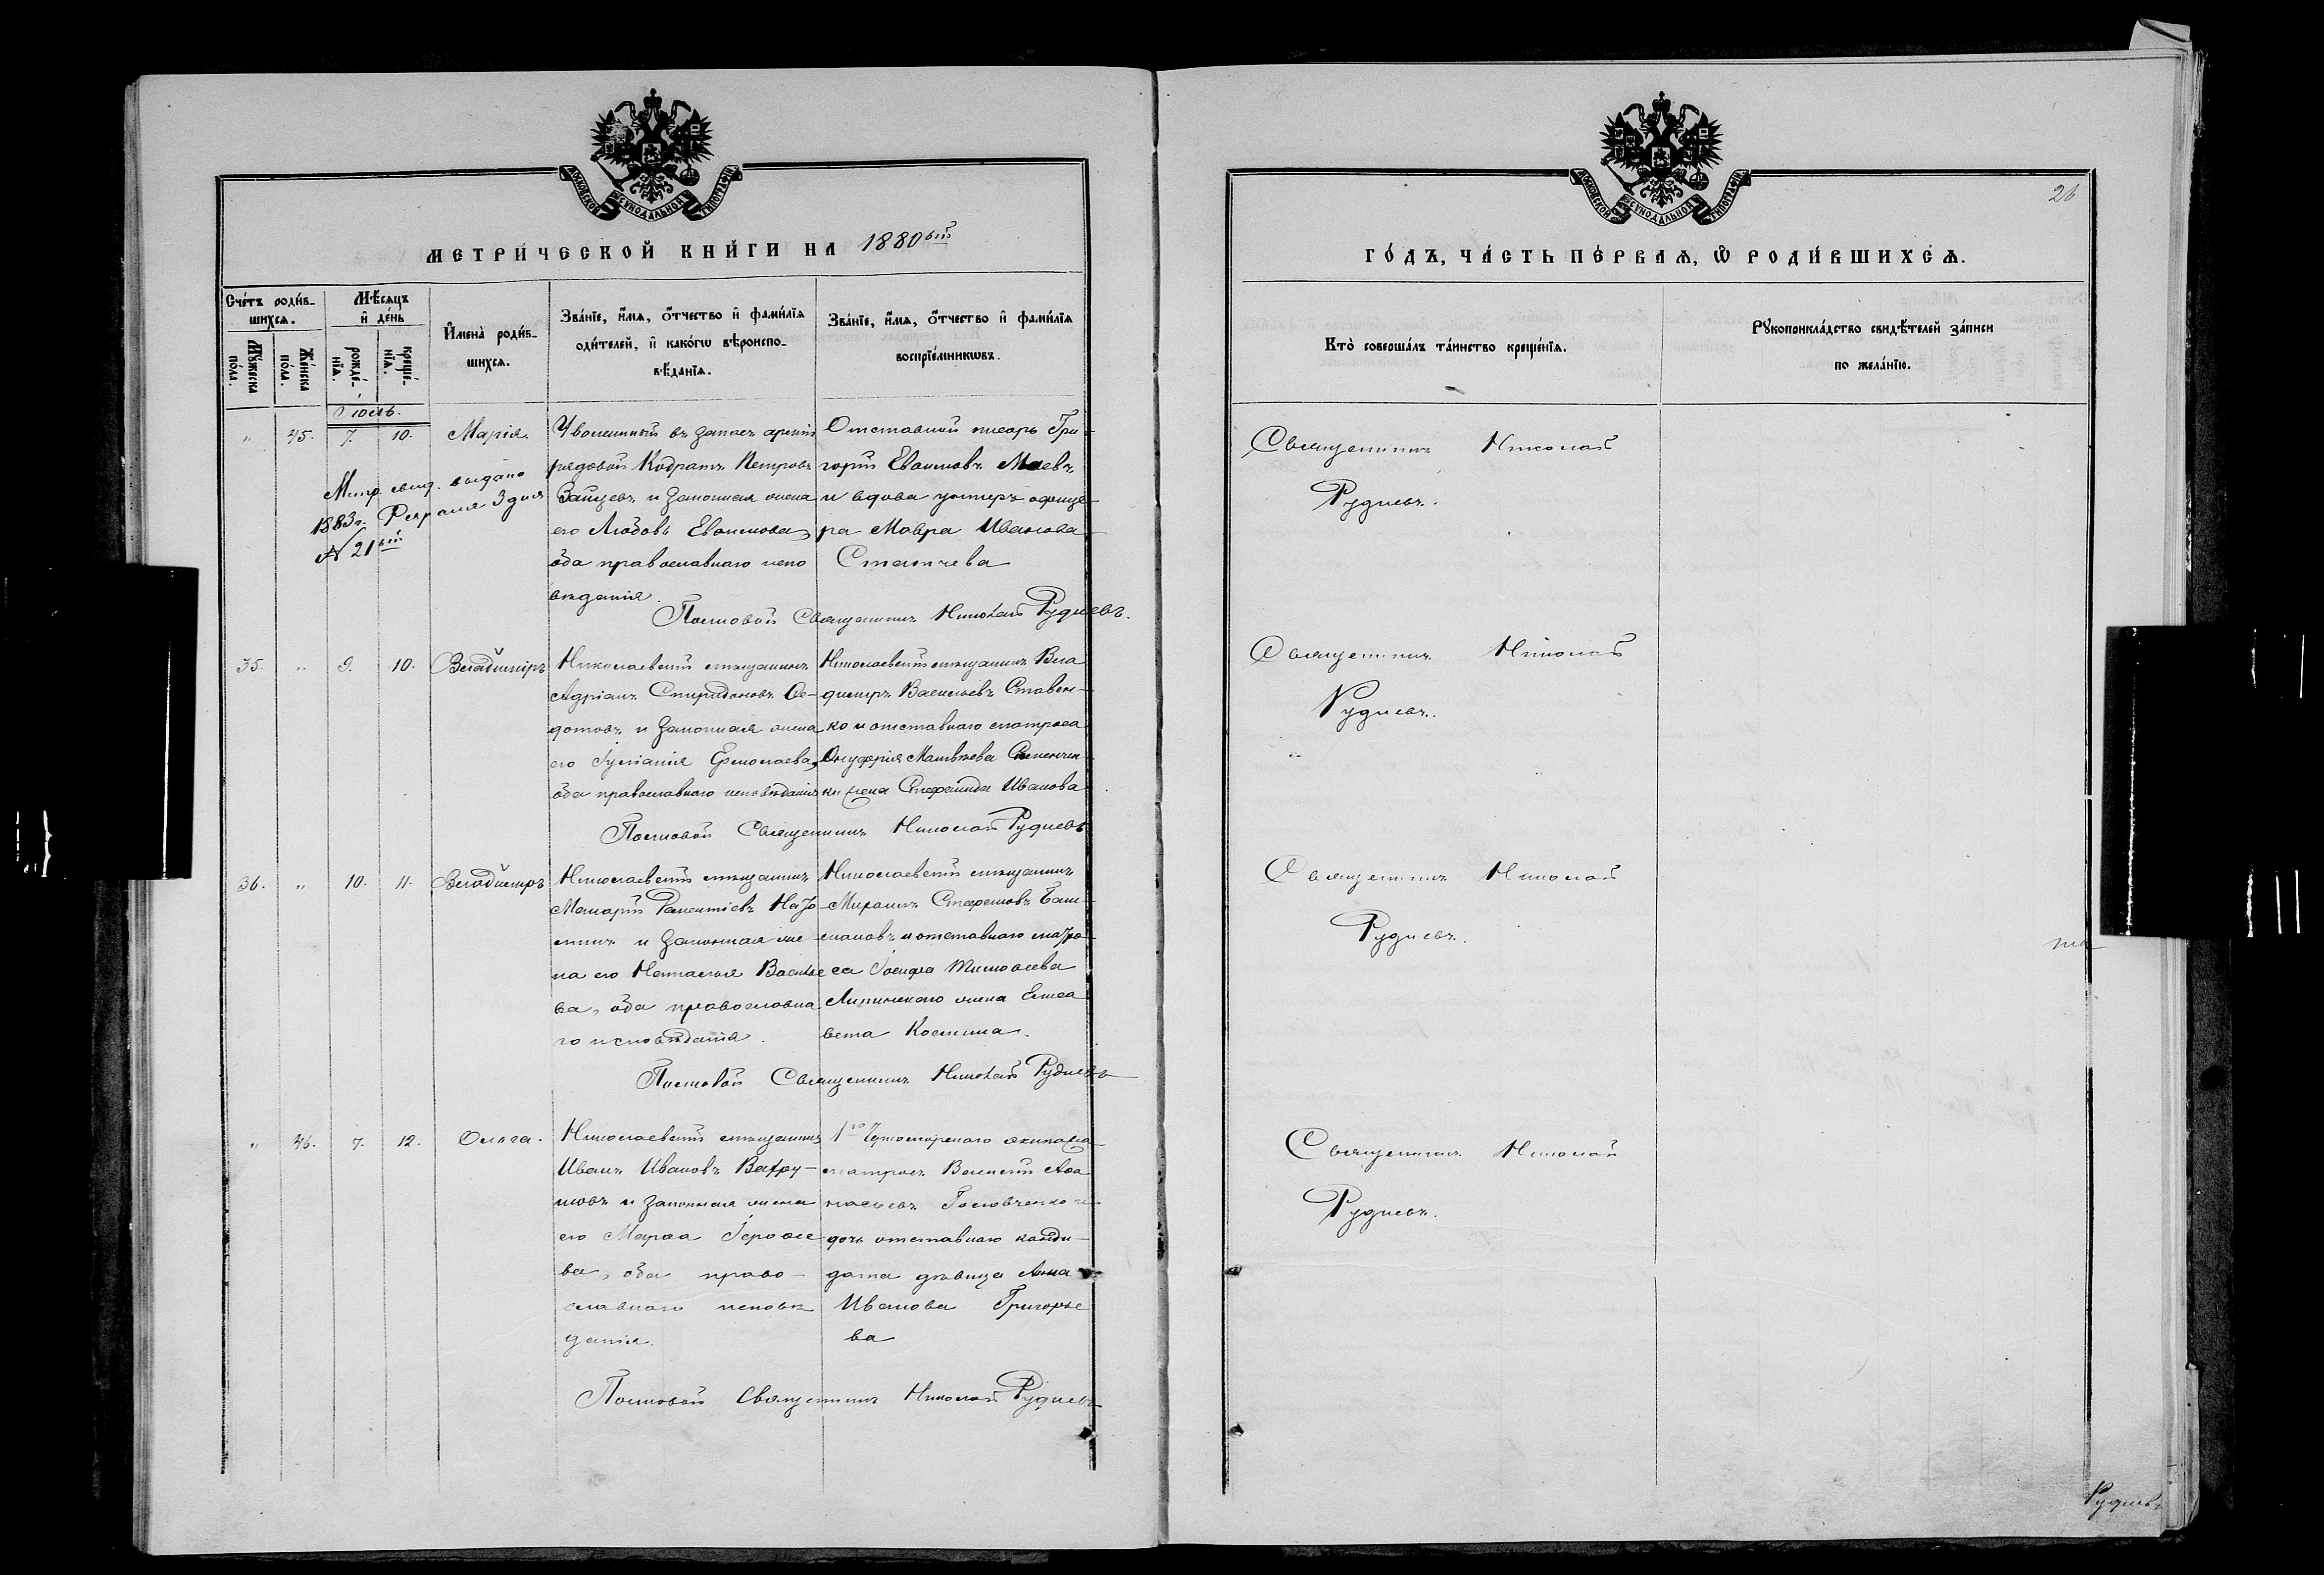 МОСКОВСКОЙ СѴНОДАЛЬНОЙ ТИПОГРАФІИ
МЕТРИ́ЧЕСКОЙ КНИ́ГИ НА 1880ый
Сче́тъ роди́в-
шихсѧ.
Мꙋ́жеска по́ла.
Же́нска по́ла.
Мѣ́сѧцъ
и҆ де́нь
рожде́-
нїѧ.
креще́-
нїѧ.
И҆мена̀ роди́в-
шихсѧ.
Зва́нїе, и҆́мѧ, ѻ҆́тчество и҆ фами́лїѧ
оди́телей, и҆ како́гѡ вѣроиспо-
вѣ́данїѧ.
Зва́нїе, и҆́мѧ, ѻ҆́тчество и҆ фами́лїѧ
воспрїе́мникѡвъ.
Іюль.
" 45. 7. 10. Марія.
Уволенный въ запасъ арміи
рядовой Кодратъ Петровъ
Зайцевъ и законная жена
его Любовь Евѳимова,
оба православнаго испо
вѣданія.
Отставной писарь Гри-
горій Евѳимовъ Маевъ
и вдова унтеръ офице-
ра Мавра Иванова
Статчева
Метр. свид. выдано
1883г. Февраля 3 дня
№ 21ый
Приходскій Священникъ Николай Рудневъ.
35. " 9. 10. Владиміръ
Николаевскій мѣщанинъ
Адріанъ Спиридоновъ Ѳе-
дотовъ и законная жена
его Іуліанія Ермолаева,
оба православнаго исповѣданія
Николаевскій мѣщанинъ Вла
диміръ Васильевъ Ставен-
ко и отставнаго матроса
Онуфрія Матвѣева
жена Стефанида Иванова
Священникъ Николай Рудневъ
36. " 10. 11. Владиміръ
Николаевскій мѣщанинъ
и законная же-
на его Наталія Василье
ва, оба православна
го исповѣданія.
Николаевскій мѣщанинъ
Михаилъ Стефановъ
и отставнаго матро-
са Іосифа Тимоѳеева
Липинскаго жена Елиса
вета Косьмина.
Священникъ Николай Рудневъ
" 46. 7. 12. Ольга.
Николаевскій мѣщанинъ
Иванъ Ивановъ Вахру-
шовъ и законная жена
его Марѳа Іероѳее
ва, оба право-
славнаго исповѣ
данія.
1го Черноморскаго экипажа
матросъ Василій Аѳа
насьевъ Головченко и
дочь отставнаго канди-
дата дѣвица Анна
Иванова Григорье
ва
Священникъ Николай Рудневъ
МОСКОВСКОЙ СѴНОДАЛЬНОЙ ТИПОГРАФІИ
26
ГО́ДЪ, ЧА́СТЬ ПЕ́РВАѦ, Ѡ҆ РОДИ́ВШИХСѦ.
Кто̀ соверша́лъ та́инство креще́нїѧ.
Рꙋкоприкла́дство свидѣ́телей за́писи
по жела́нїю.
Священникъ Николай
Рудневъ.
Священникъ Николай
Рудневъ.
Священникъ Николай
Рудневъ.
Священникъ Николай
Рудневъ.
Рудневъ